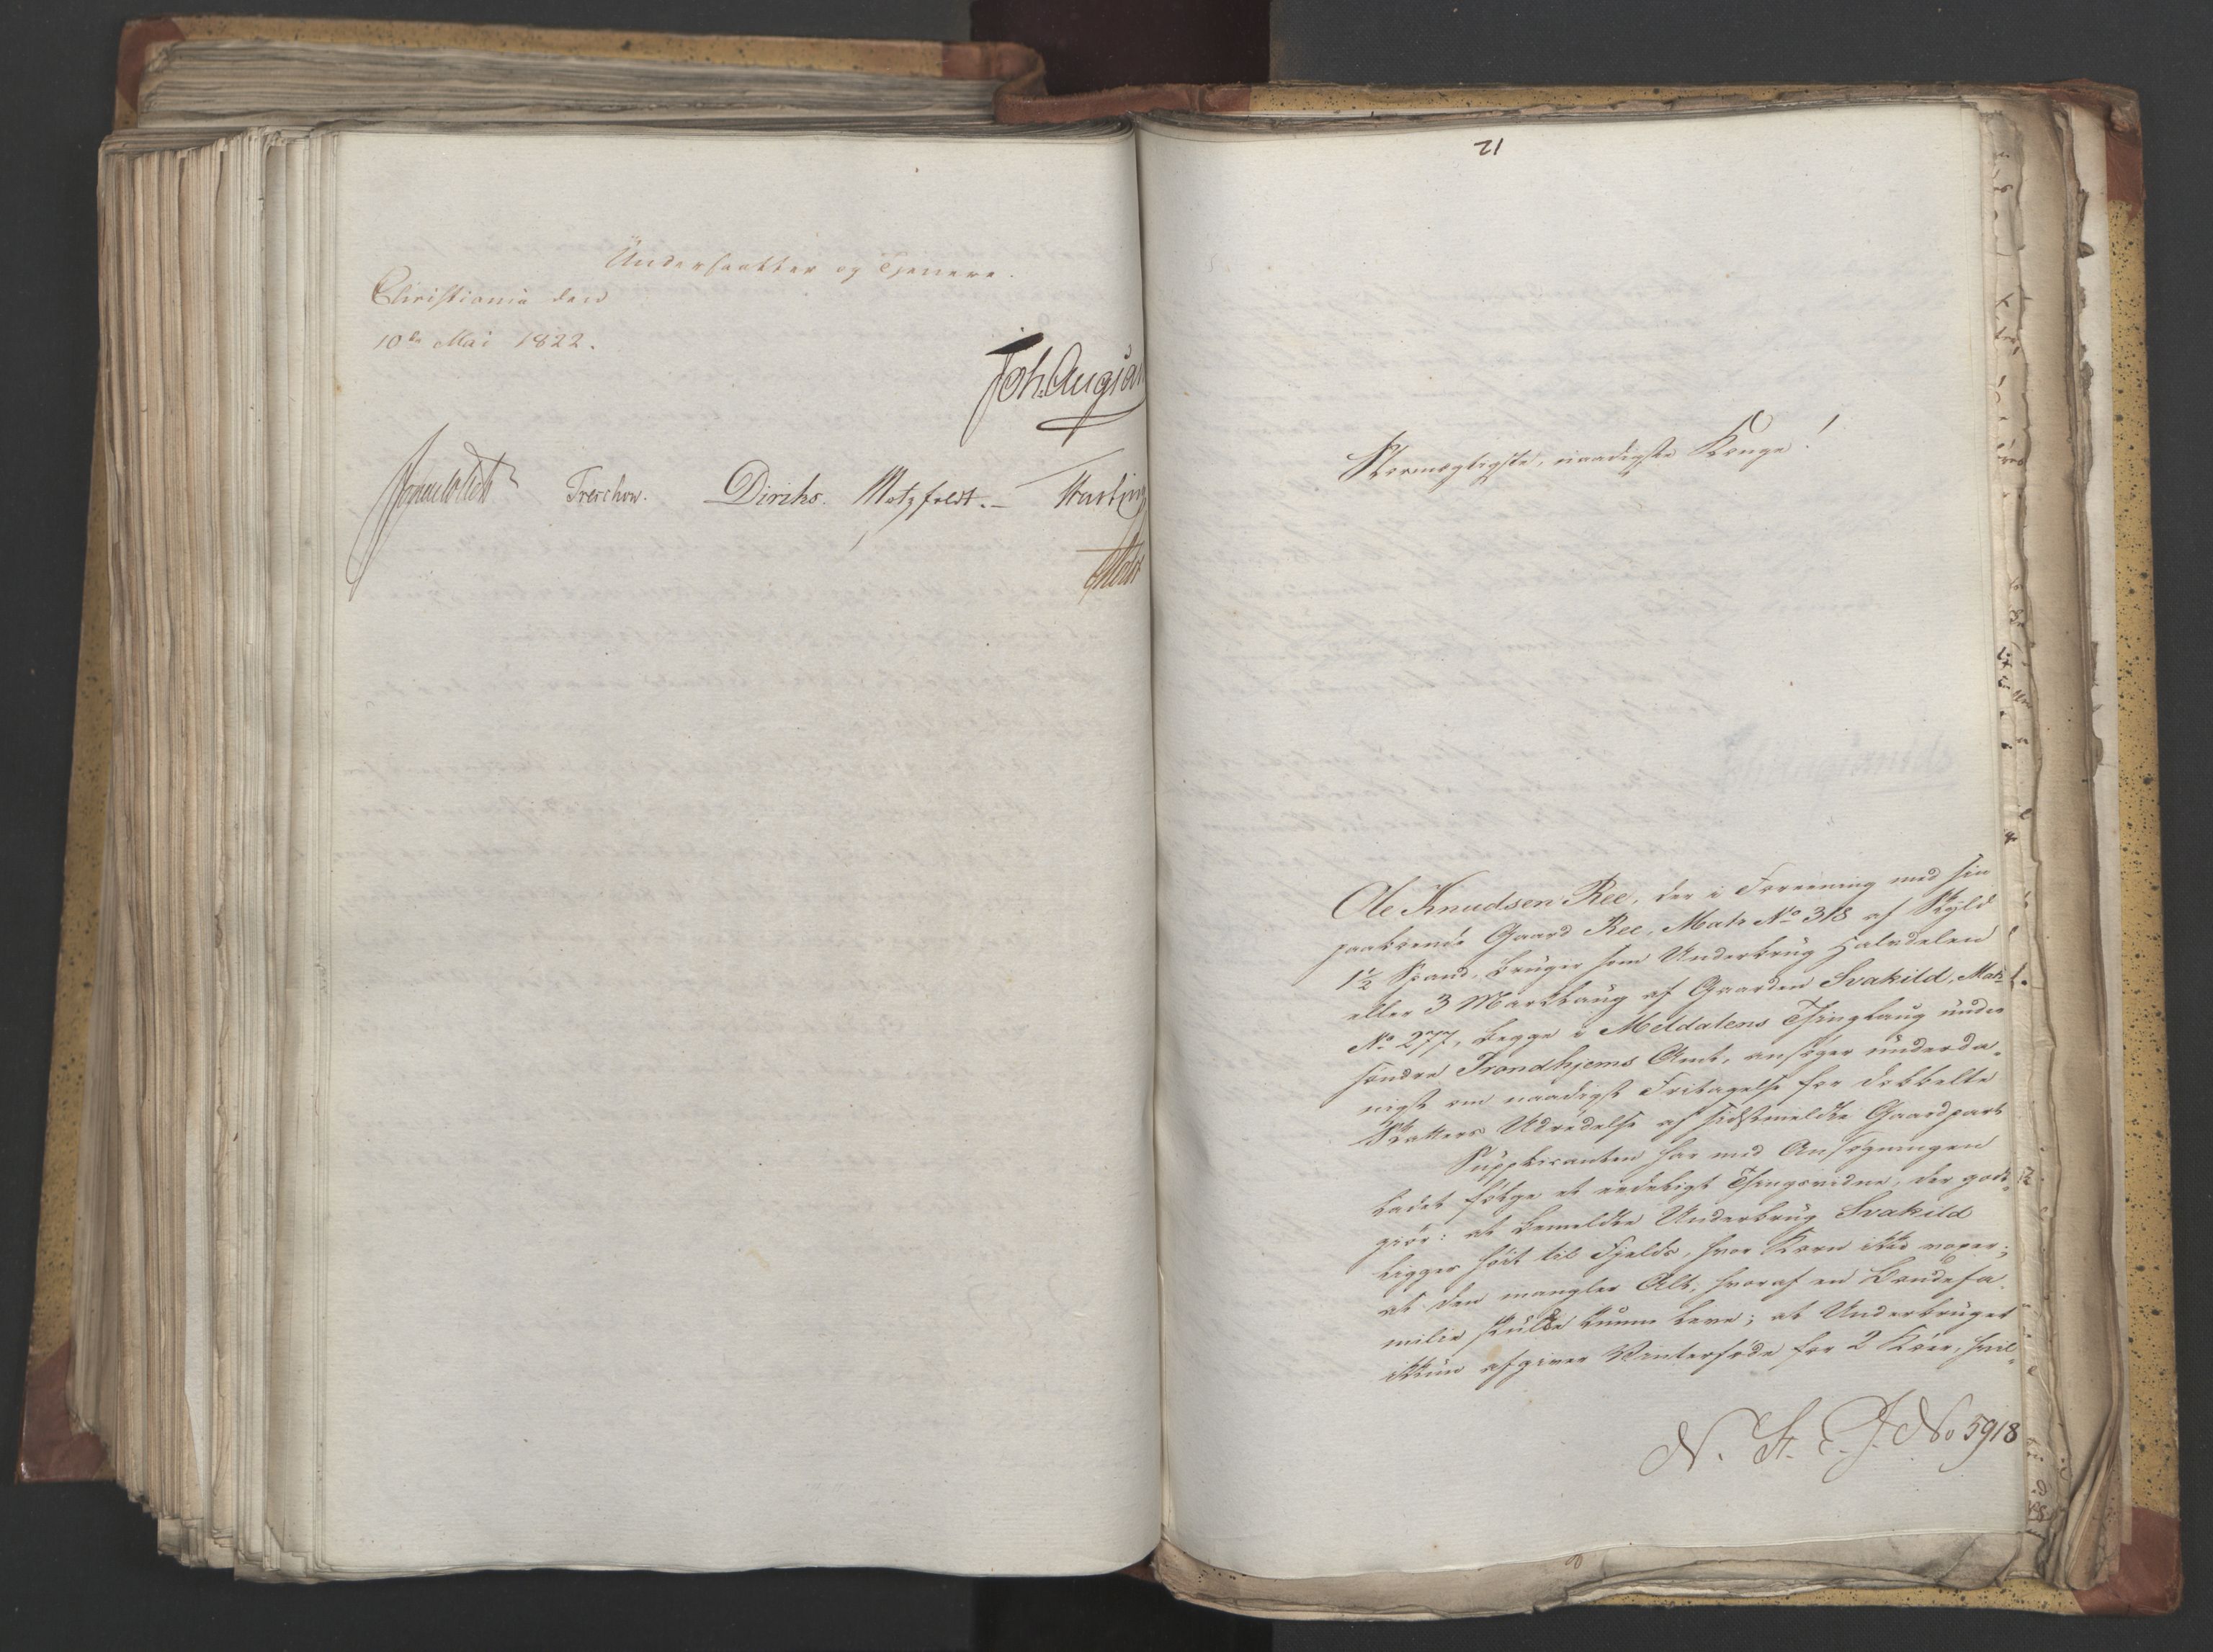 Undersaatter og Tjenere.
Christiania den
10de Mai 1822.
Joh. Aug: San
Sommerhielm Treschow. Diriks. Motzfeldt. — Fasting
Holst
21
Stormægtigste, naadigste Konge!
Ole Knudsen Ree, der i Foreening med sin
paaboende Gaard Ree, Matr No 318 af Skyld
1½ Spand, bruger som Underbrug Halvdelen
eller 3 Marklaug af Gaarden Svakild, Matr
No 277, begge i Meldalens Thinglaug under
søndre Trondhjems Amt, ansøger underda-
nigst om naadigst Fritagelse for dobbelte
Skatters Udredelse af sidstmeldte Gaardpart
Supplicanten har med Ansøgningen
ladet følge et eedeligt Thingsvidne, der godt-
giør: at bemeldte Underbrug Svakild
ligger høit til Fjelds, hvor Korn ikke voxer;
at den mangler Alt, hvoraf en Bondefa-
milie skulde kunne leve; at Underbruget
ikkun afgiver Vinterføde for 2 Køer, hvil-
N. St. C. J. No 5918